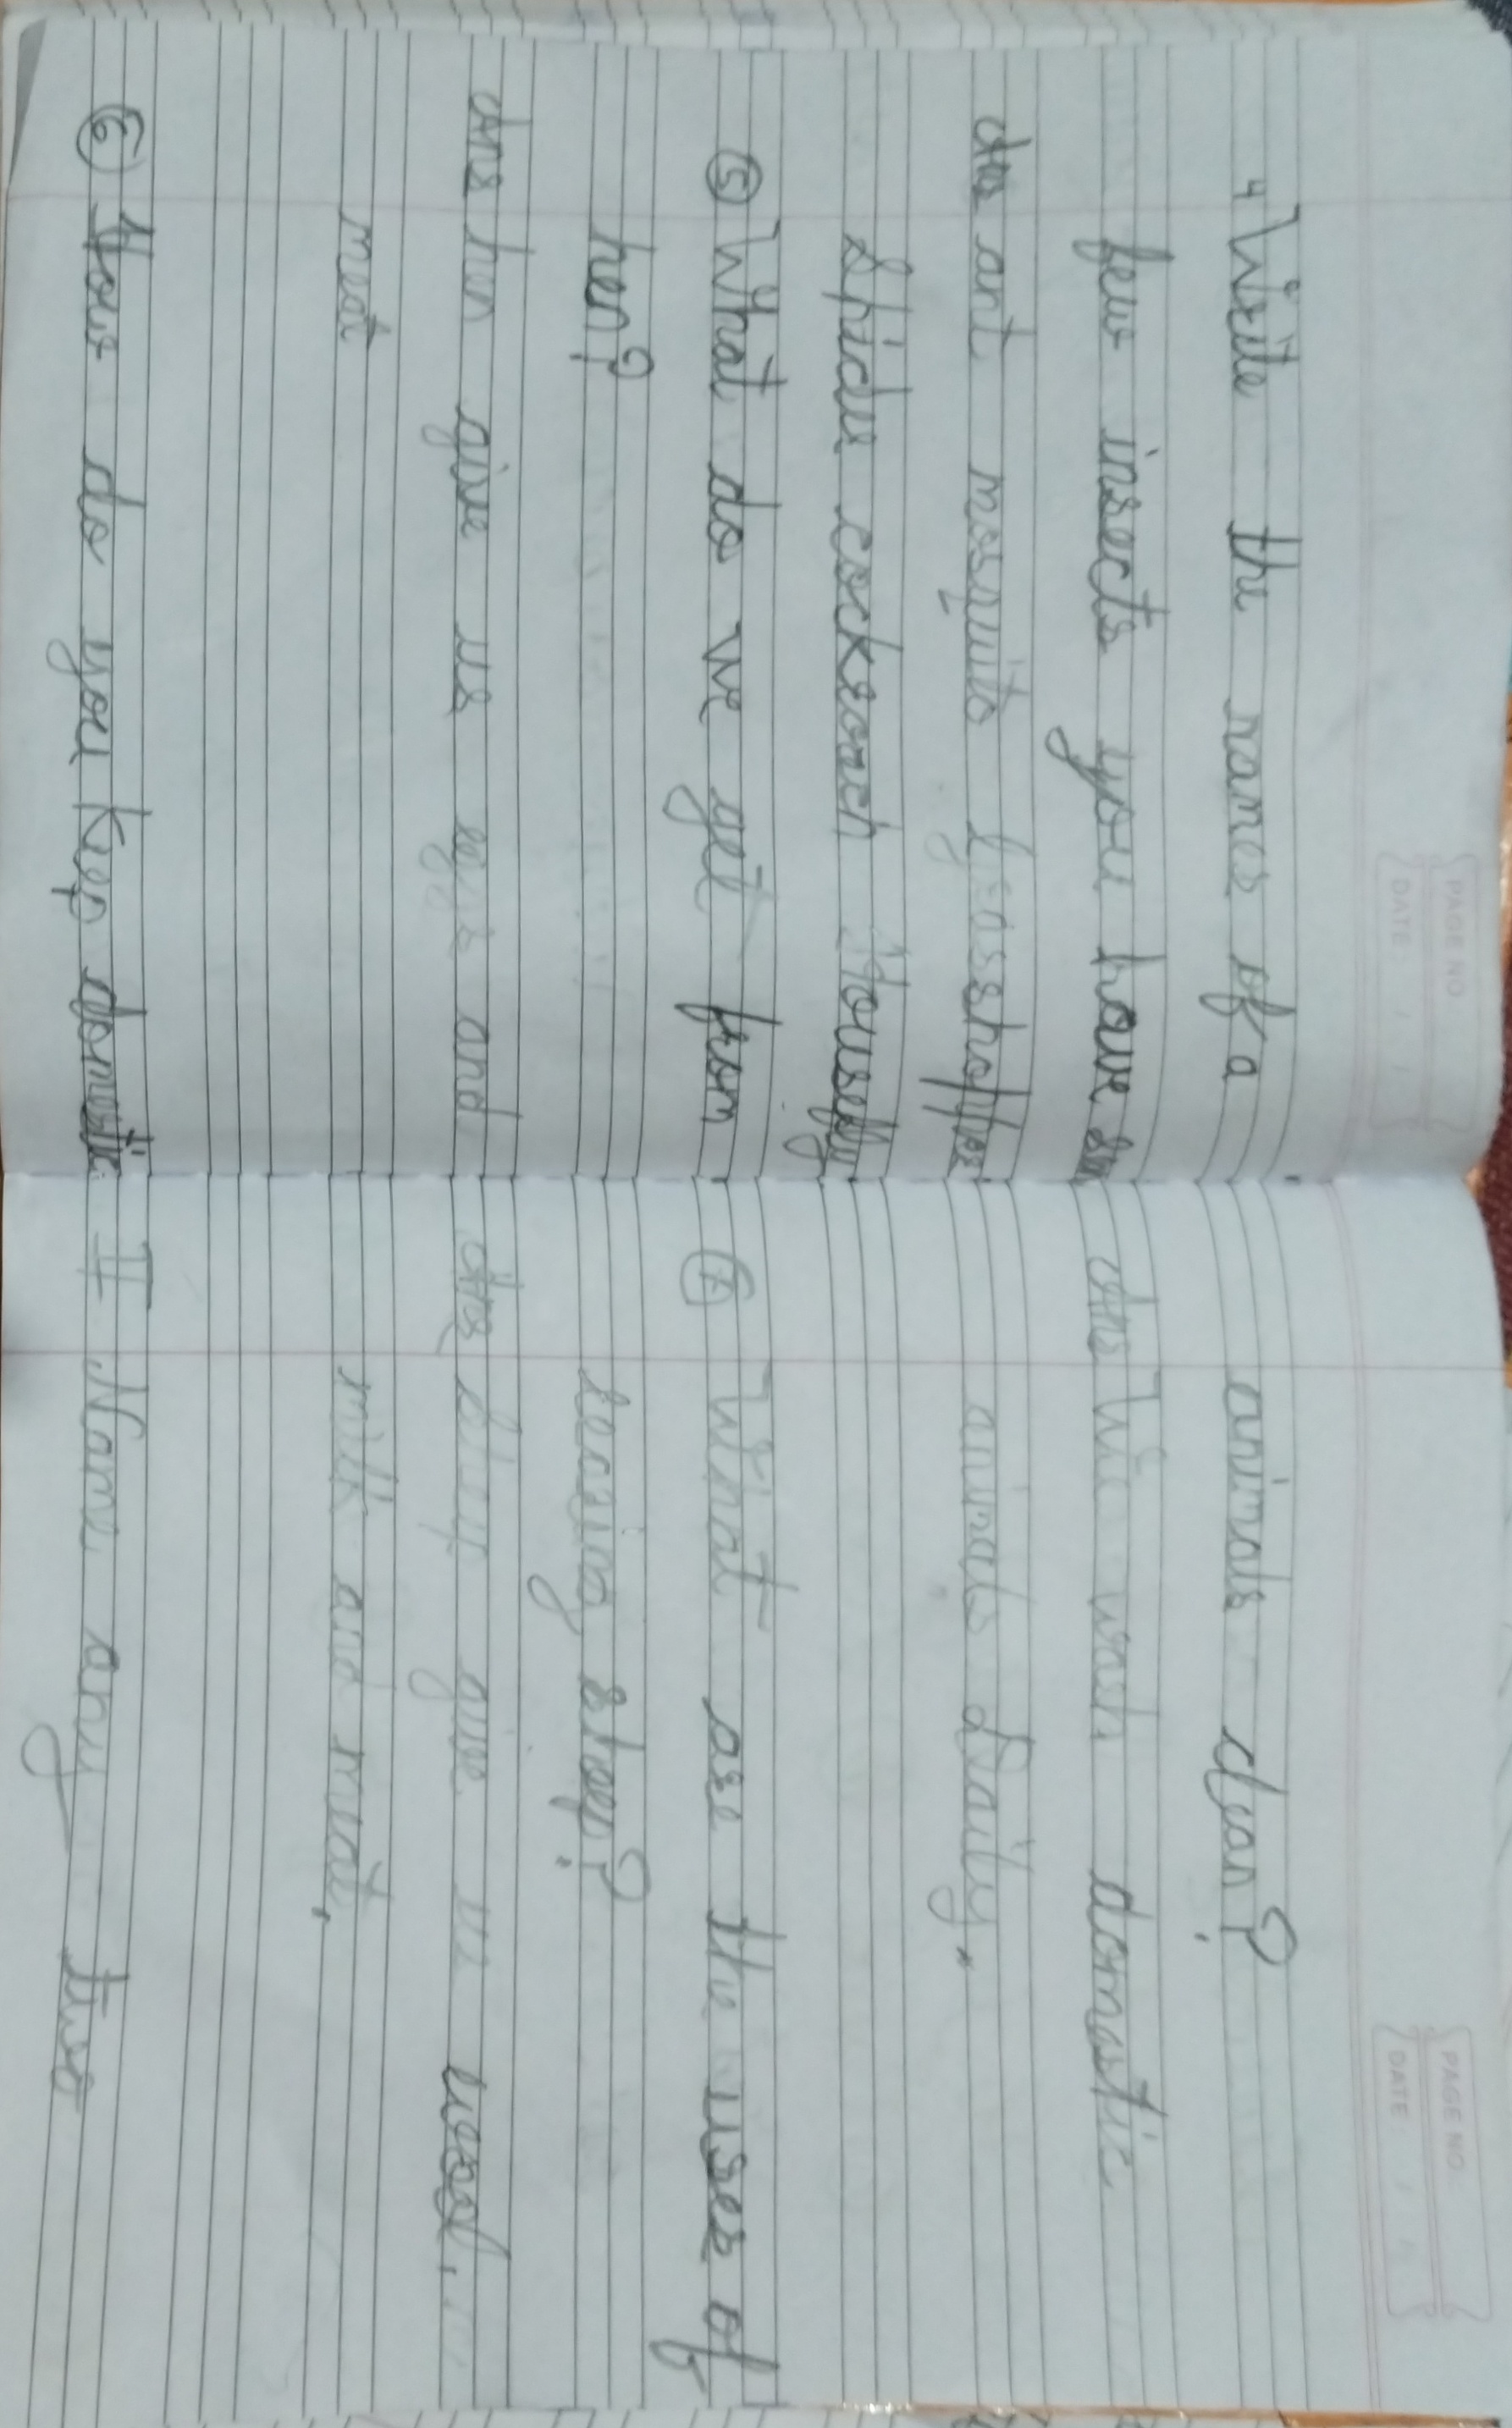 PAGE NO.
DATE: / /
4 Write the names of a
few insects you have
Ans ant mosquito Grasshopper
Spider cockroach Housefly
5 What do we get from
hen?
Ans hen give us eggs and
meat
6 How do you keep domestic
PAGE NO.
DATE: / /
animals clean?
Ans We wash domastic
animals Daily.
7 What are the uses of
rearing sheep?
Ans sheep give us wool.
milk and meat.
II Name any two